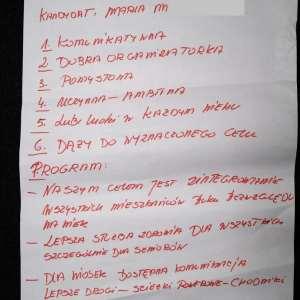 KANDYDAT: MARIA M
1. KOMUNIKATYWNA
2. DOBRA ORGANIZATORKA
3. POMYSŁOWA
4. AMBITNA
5. LUBI LUDZI W KAŻDYM WIEKU
6. DĄŻY DO WYZNACZONEGO CELU
PROGRAM:
- NASZYM CELEM JEST ZINTEGROWANIE
WSZYSTKICH MIESZKAŃCÓW BEZWZGLĘDU
NA WIEK
- LEPSZA SŁUŻBA ZDROWIA DLA WSZYSTKICH
SZCZEGÓLNIE DLA SENIORÓW
- DLA WIOSEK DOSTĘPNA KOMUNIKACJA
LEPSZE DROGI - ŚCIEŻKI ROWEROWE - CHODNIKI